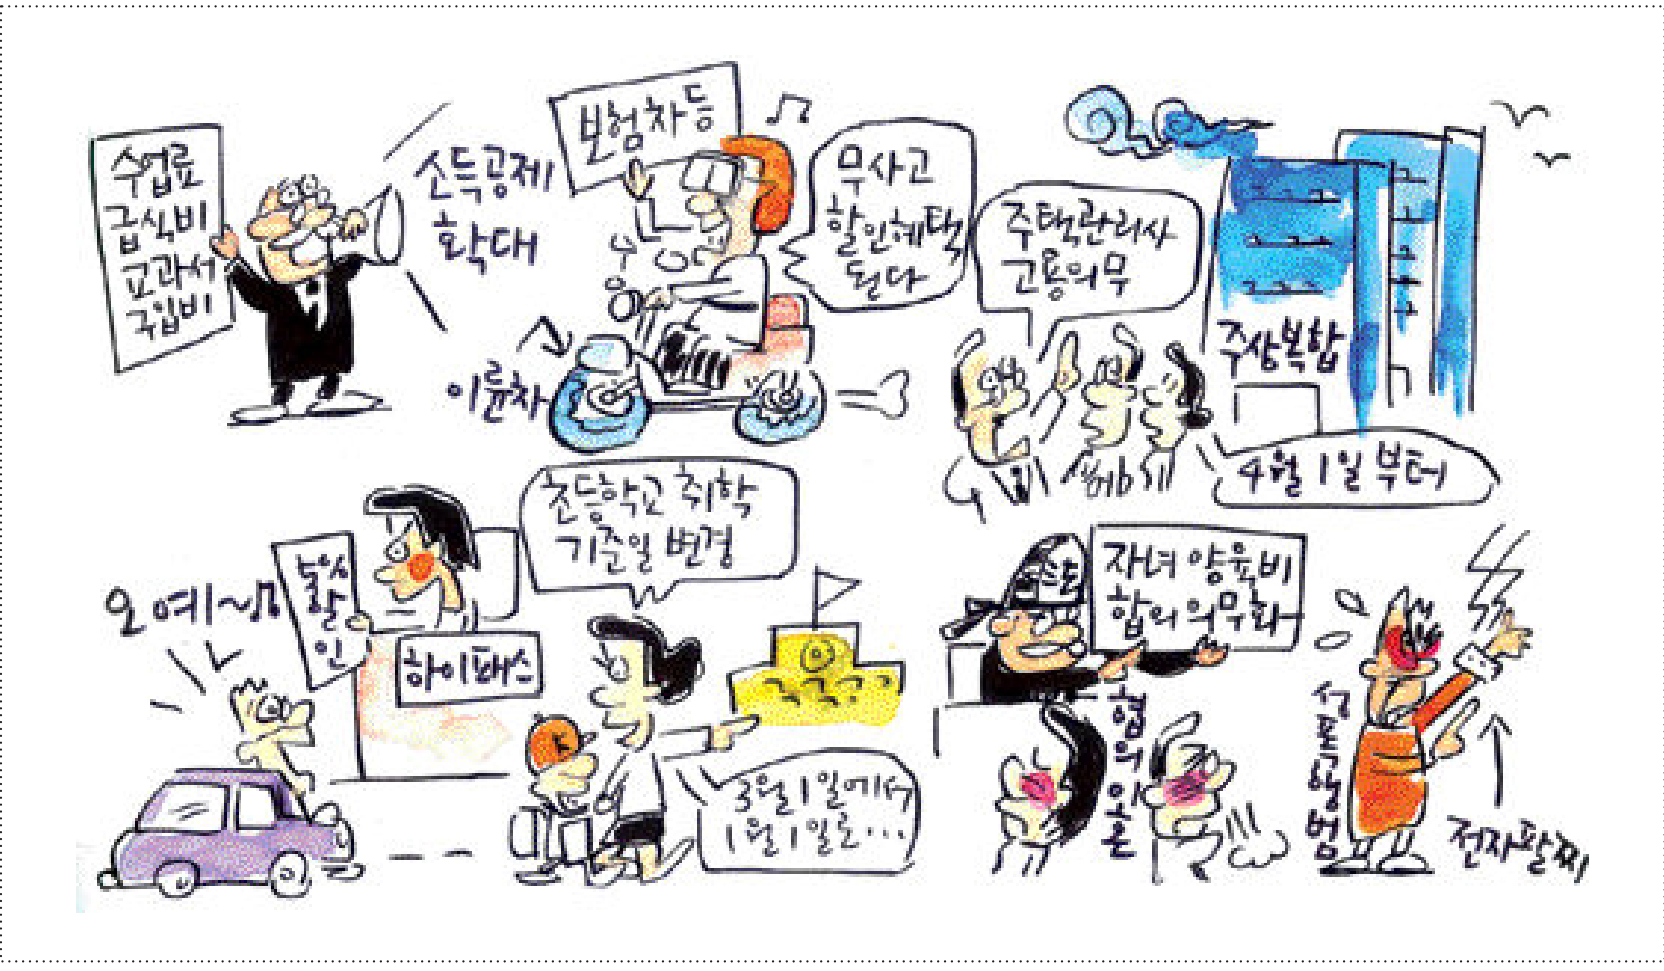 수업료
급식비
교과서
구입비
소득공제
확대
보험차등
무사고
할인혜택
된다
이륜차
주택관리사
고용의무
주상복합
4월 1일 부터
오 예~
할
인
하이패스
초등학교 취학
기준일 변경
3월 1일에서
1월 1일로…
자녀 양육비
합의 의무화
협의이혼
성폭행범
전자팔찌